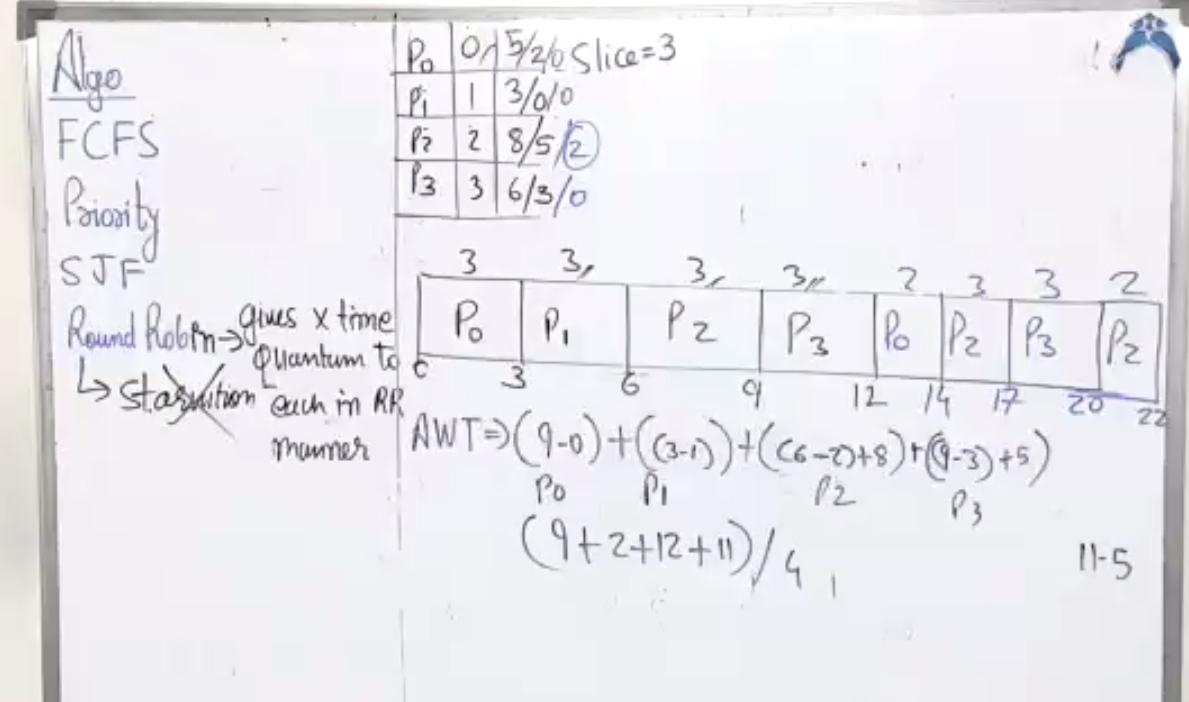 Algo
FCFS
Priority
SJF
Round Robin → gives x time
Quantum to
each in RR
manner
↳ starvition
P0 0 5/2/0 Slice=3
P1 1 3/0/0
P2 2 8/5/2
P3 3 6/3/0
3 3 3 3 2 3 3 2
P0 P1 P2 P3 P0 P2 P3 P2
0 3 6 9 12 14 17 20 22
AWT ⇒ (9-0) + ((3-1)) + ((6-2)+8) + ((9-3)+5)
P0 P1 P2 P3
(9+2+12+11)/4
11-5